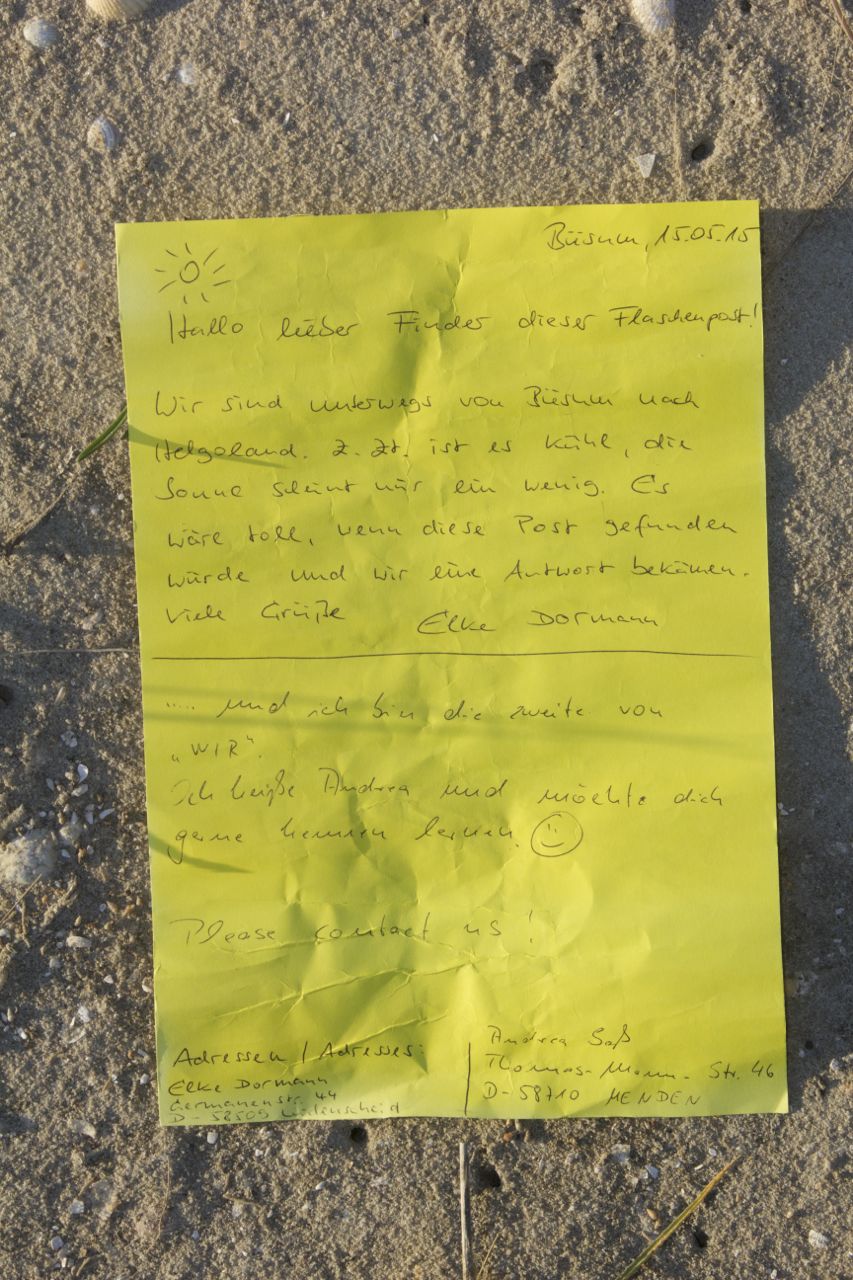 Büsum, 15.05.15
Hallo lieber Finder dieser Flaschenpost!
Wir sind unterwegs von Büsum nach
Helgoland. Z. Zt. ist es kühl, die
Sonne scheint nur ein wenig. Es
wäre toll, wenn diese Post gefunden
würde und wir eine Antwort bekämen.
Viele Grüße Elke Dormann
..... und ich bin die zweite von
„WIR“.
Ich heiße Andrea und möchte dich
gerne kennen lernen.
Please contact us!
Adressen / Adresses:
Elke Dormann
Germanenstr. 44
D-58509 Lüdenscheid
Andrea Saß
Thomas-Mann-Str. 46
D-58710 MENDEN